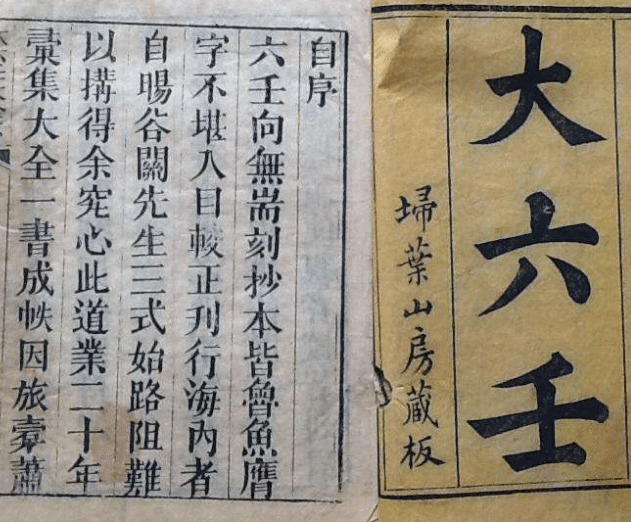 大六壬
埽葉山房藏板
自序
六壬向無耑刻抄本皆魯魚膺
字不堪入目較正刋行海內者
自暘谷關先生三式始路阻難
以搆得余究心此道業二十年
彙集大全一書成帙因旅橐蕭